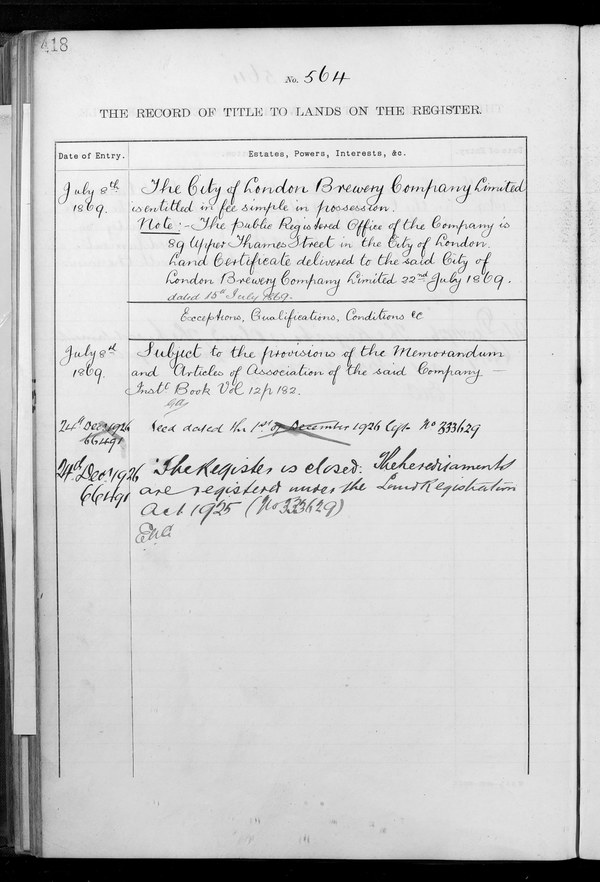 418
No. 564
THE RECORD OF TITLE TO LANDS ON THE REGISTER.
Date of Entry. Estates, Powers, Interests, &c.
July 8th The City of London Brewery Company Limited
1869. is entitled in fee simple in possession.
Note:- The public Registered Office of the Company is
89 Upper Thames Street in the City of London.
Land Certificate delivered to the said City of
London Brewery Company Limited 22nd July 1869.
dated 15th July 1869.
Exceptions, Qualifications, Conditions &c
July 8th Subject to the provisions of the Memorandum
1869. and Articles of Association of the said Company —
Instt Book Vol 12 p 182.
24th Dec 1926 Deed dated the 1st of December 1926 No 333629
66491
24th Decr 1926 The Register is closed. The hereditaments
66491 are registered under the Land Registration
Act 1925 (No 333629)